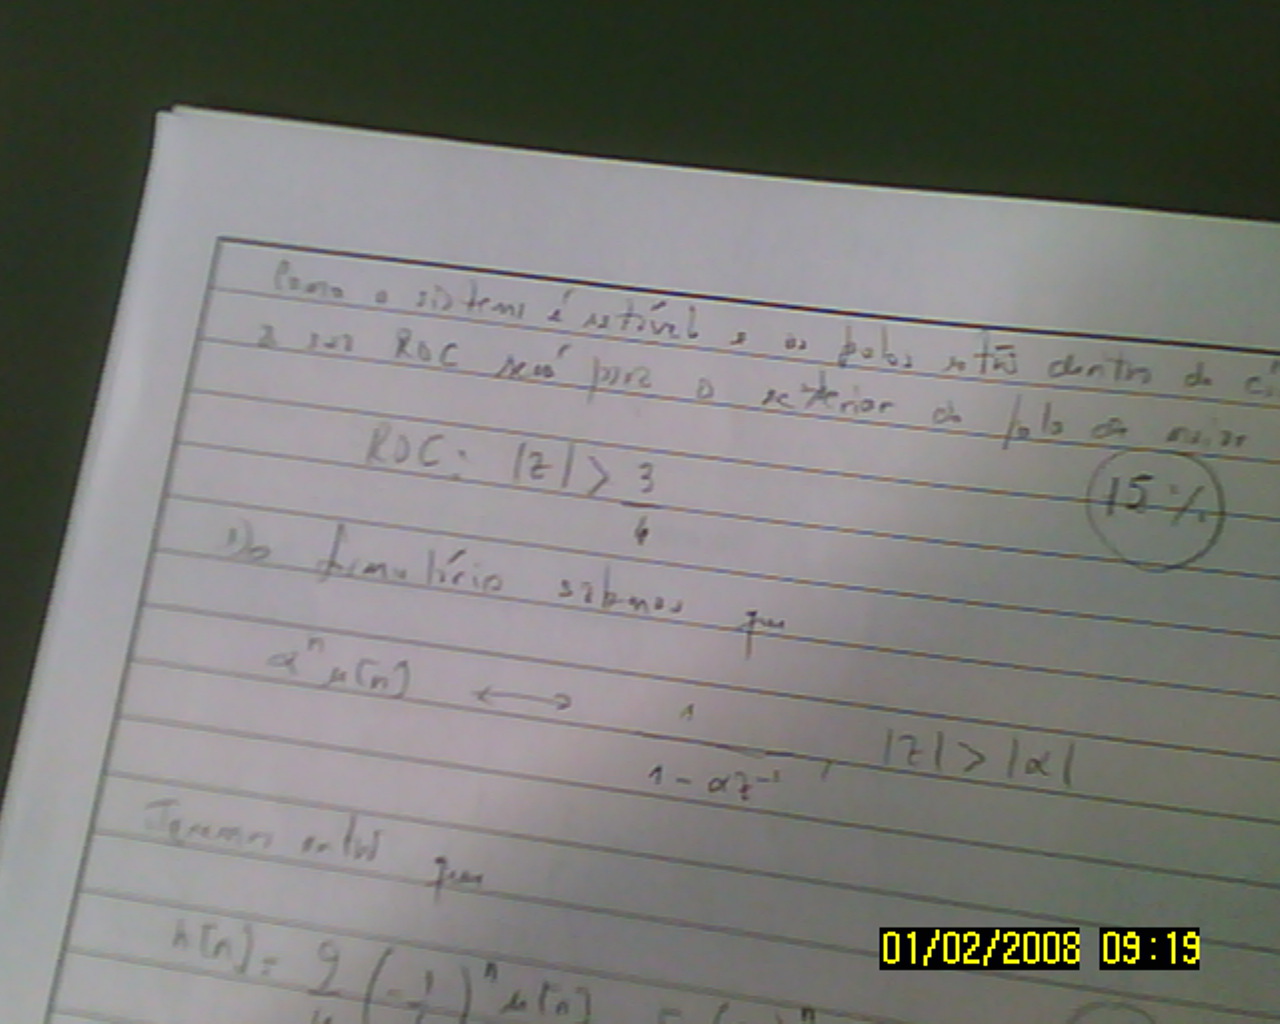 Como o sistema é estável e os polos estão dentro do
a sua ROC será para o exterior do polo de maior
ROC: |z| > 3/4
15 %
Do formulário sabemos que
α^n u[n] ⟷ 1/(1 - αz^-1), |z| > |α|
Teremos então que
h[n] =
01/02/2008 09:19